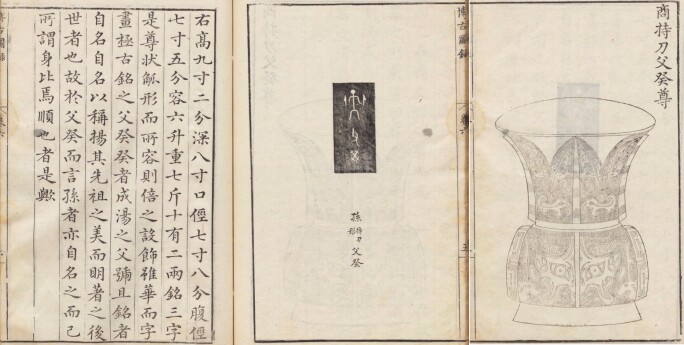 商持刀父癸尊
博古圖錄
卷六
五
孫
持刀
形
父癸
右高九寸二分深八寸口徑七寸八分腹徑
七寸五分容六升重七斤十有二兩銘三字
是尊狀觚形而所容則倍之設飾雖華而字
畫極古銘之父癸者成湯之父號且銘者
自名自名以稱揚其先祖之美而明著之後
世者也故於父癸而言孫者亦自名之而已
所謂身比焉順也者是歟